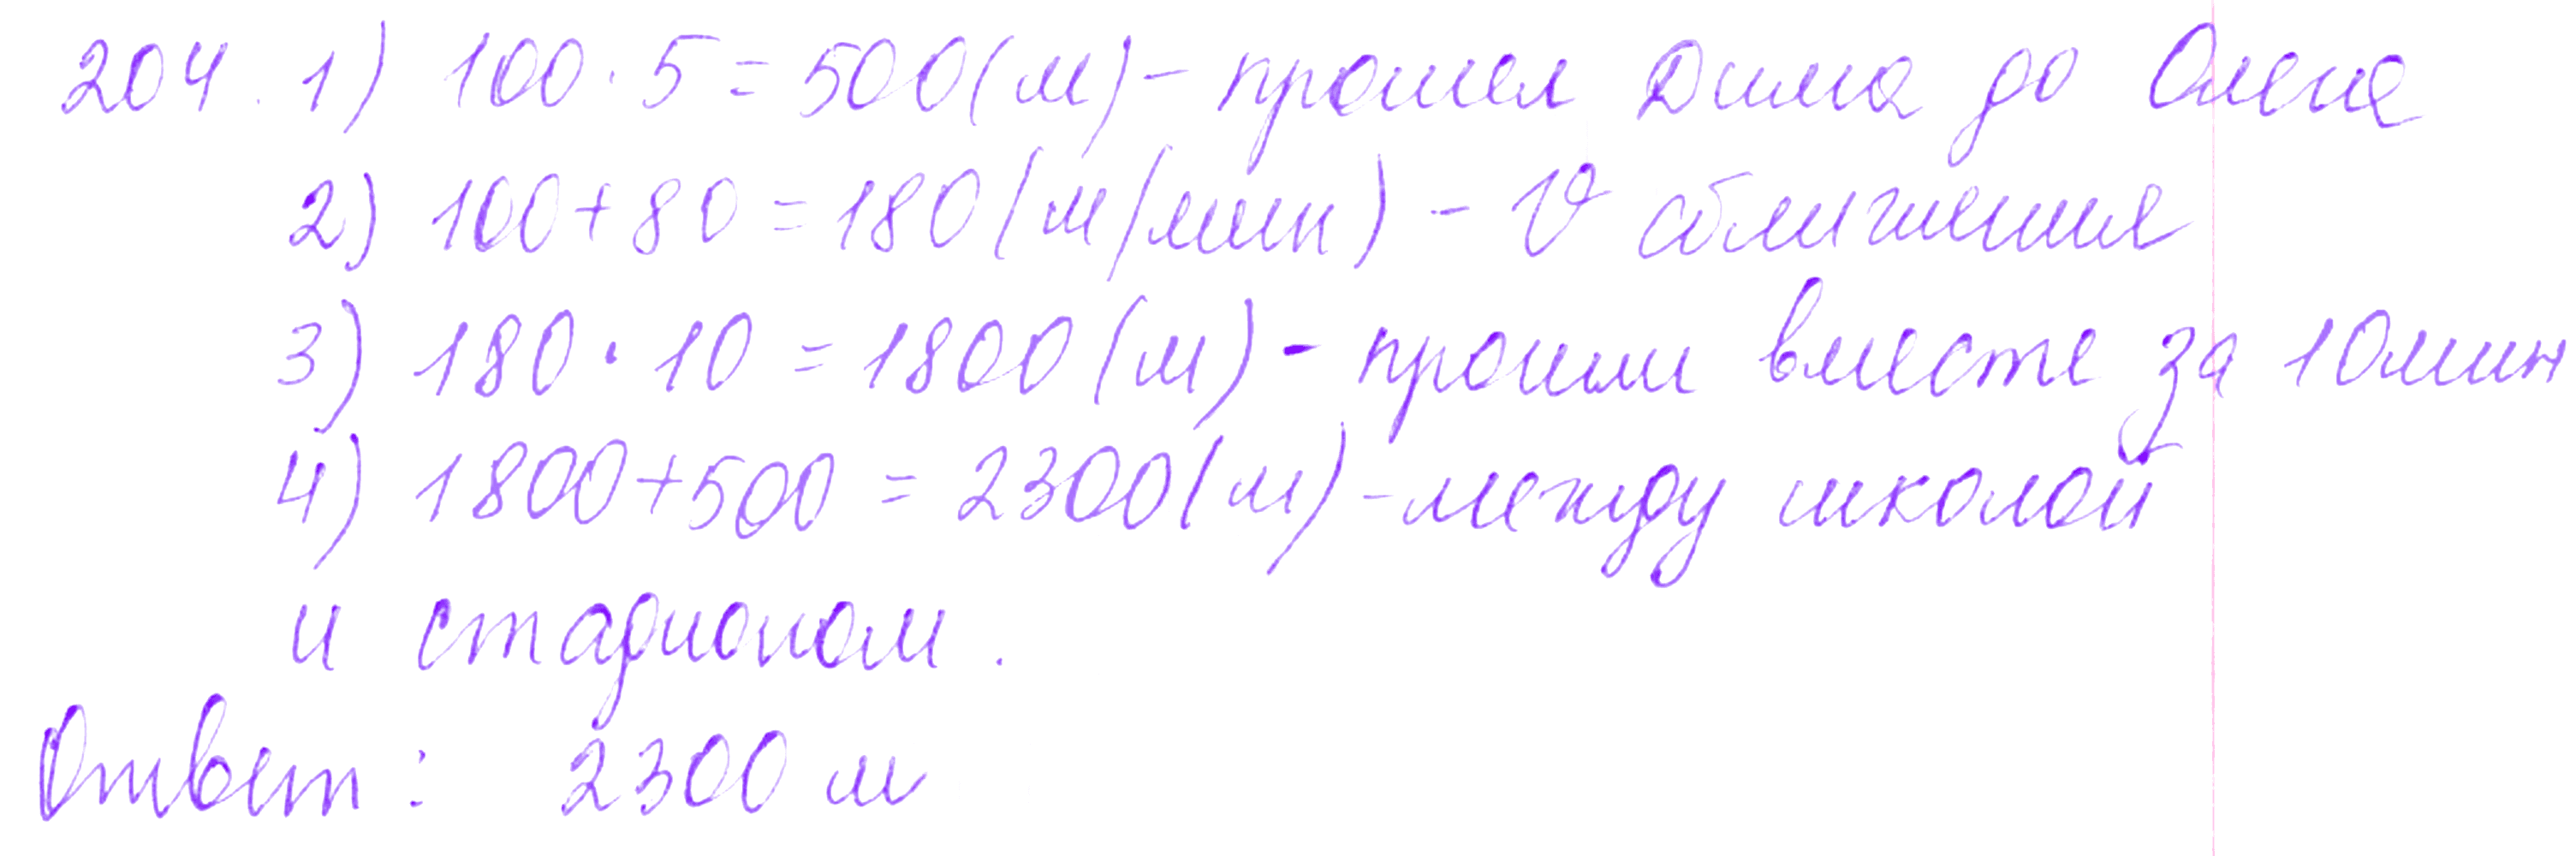 204. 1) 100 · 5 = 500 (м) - прошел Дима до Олега
2) 100 + 80 = 180 (м/мин) - V сближения
3) 180 · 10 = 1800 (м) - прошли вместе за 10 мин
4) 1800 + 500 = 2300 (м) - между школой
и стадионом.
Ответ: 2300 м